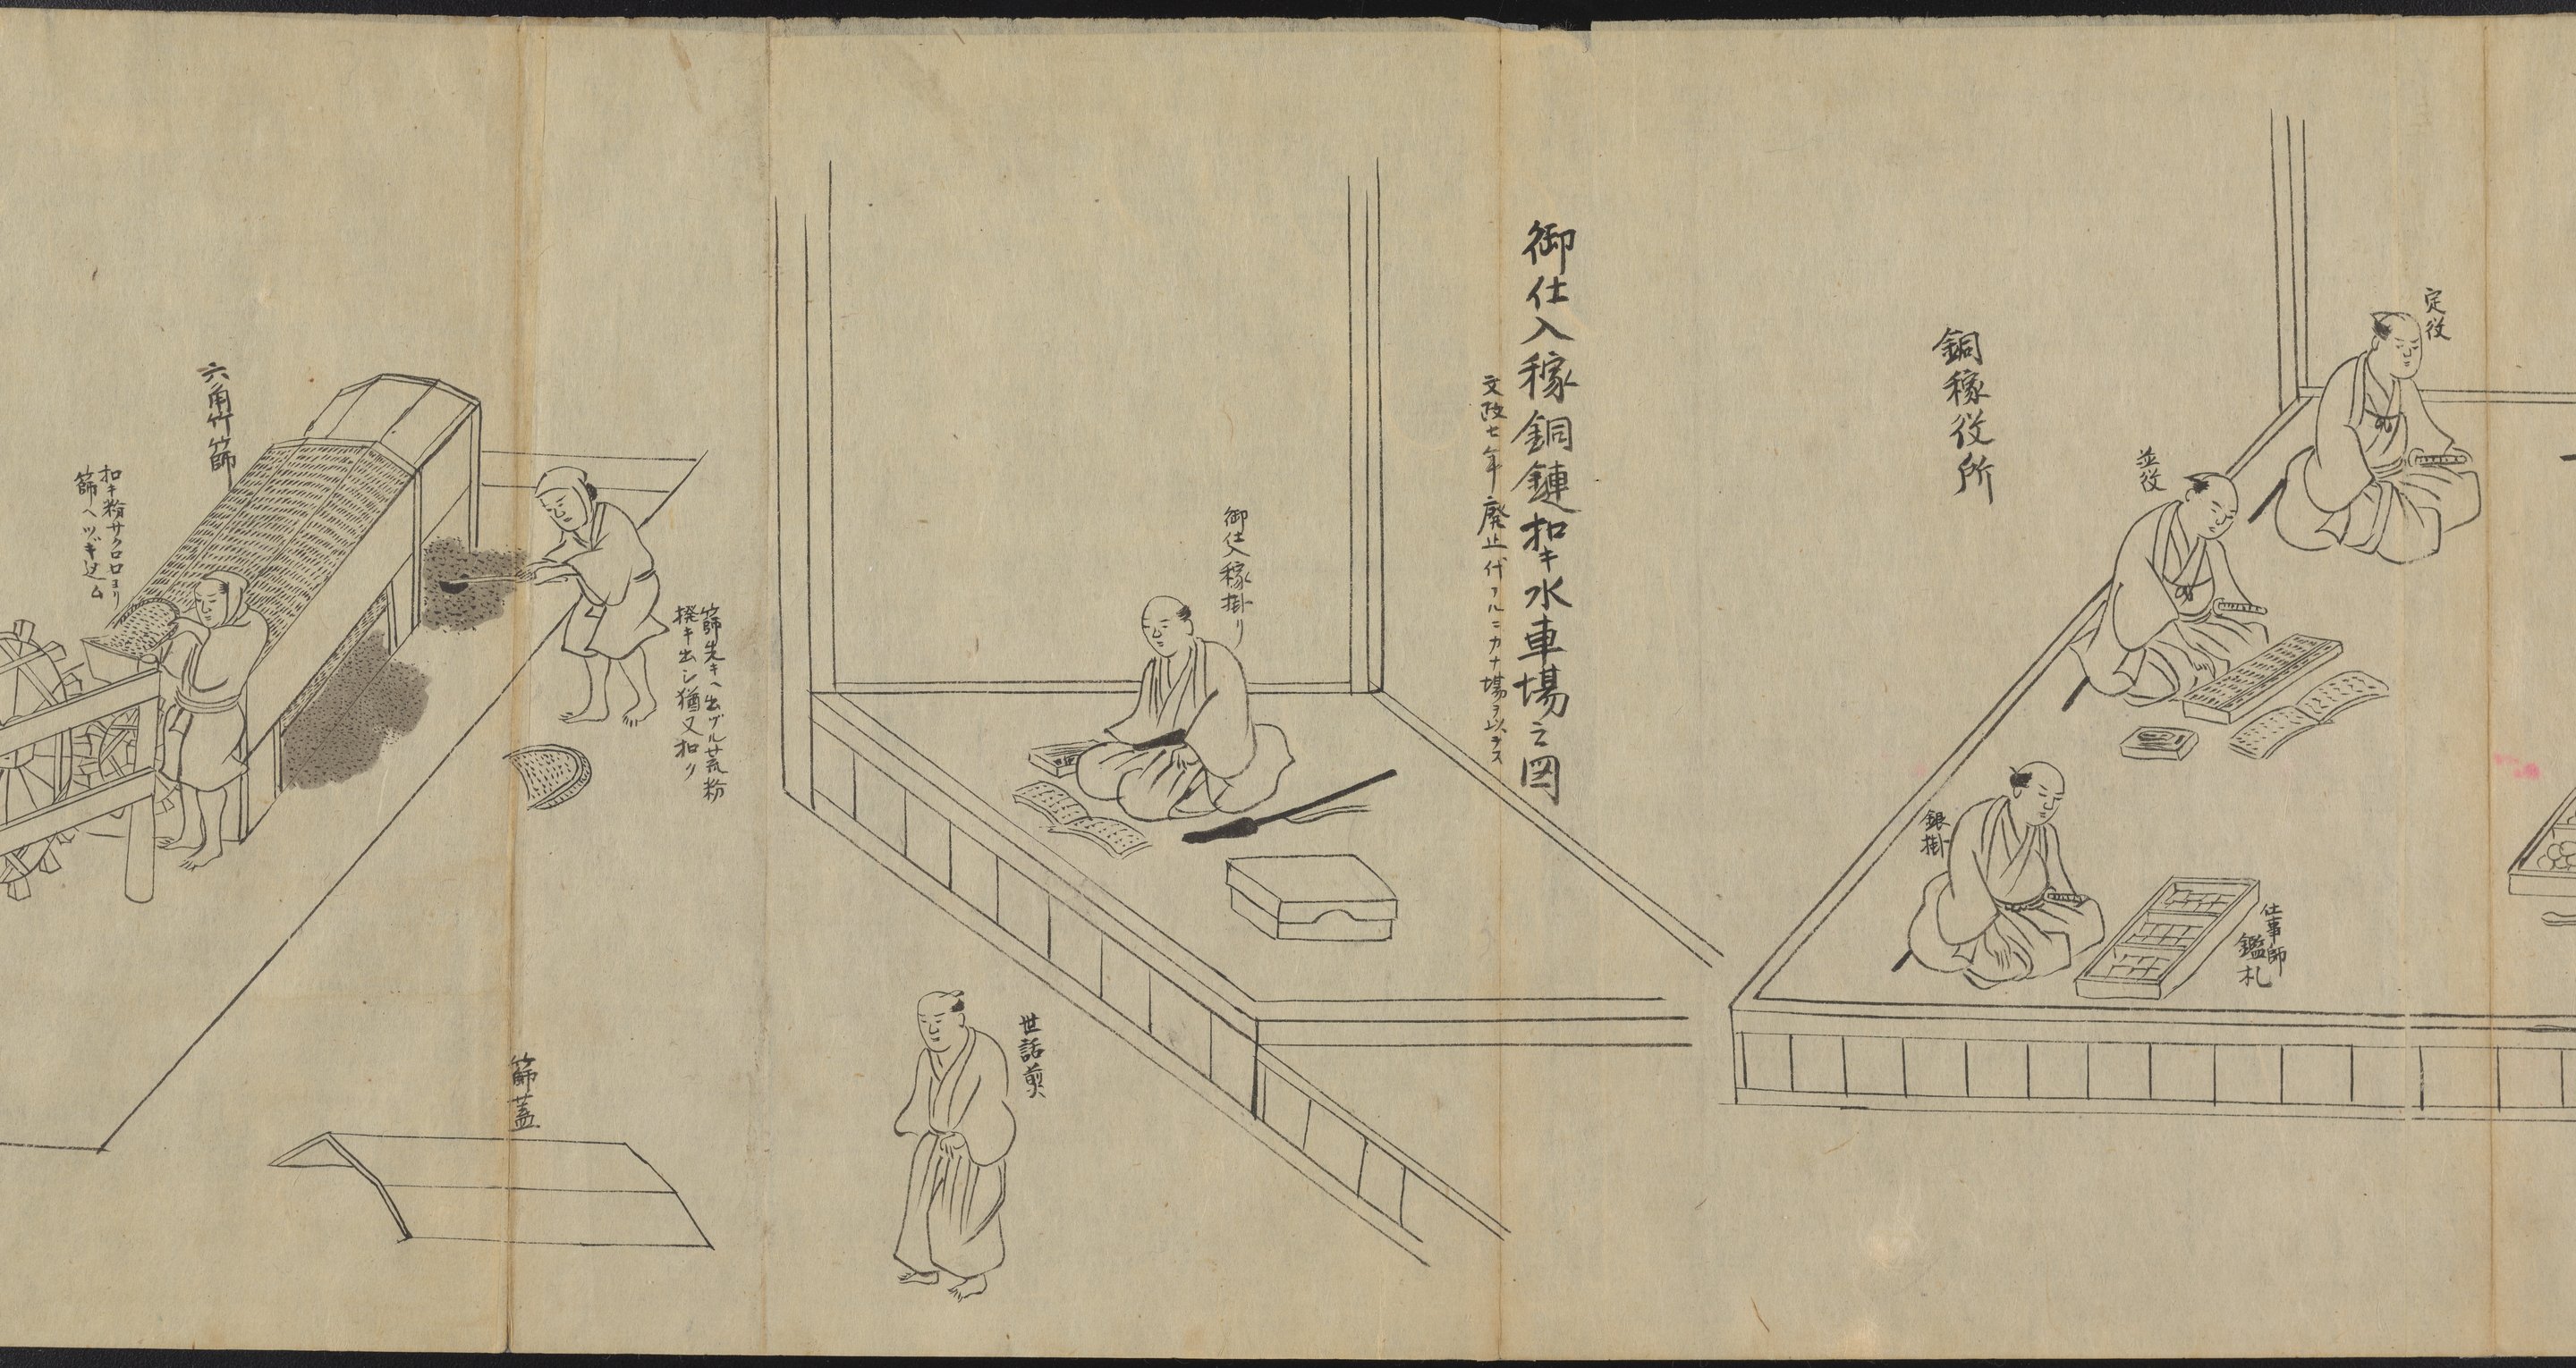 定役
並役
銅稼役所
銀掛
仕事師
鑑札
御仕入稼銅鏈扣キ水車場之図
文政七年廃止代フルニカナ場ヲ以テス
御仕入稼掛リ
世話煎
篩先キヘ出ヅル荒粉
撥キ出シ猶又扣ク
篩蓋
六角竹篩
扣キ粉サクロ口ヨリ
篩ヘツギ込ム